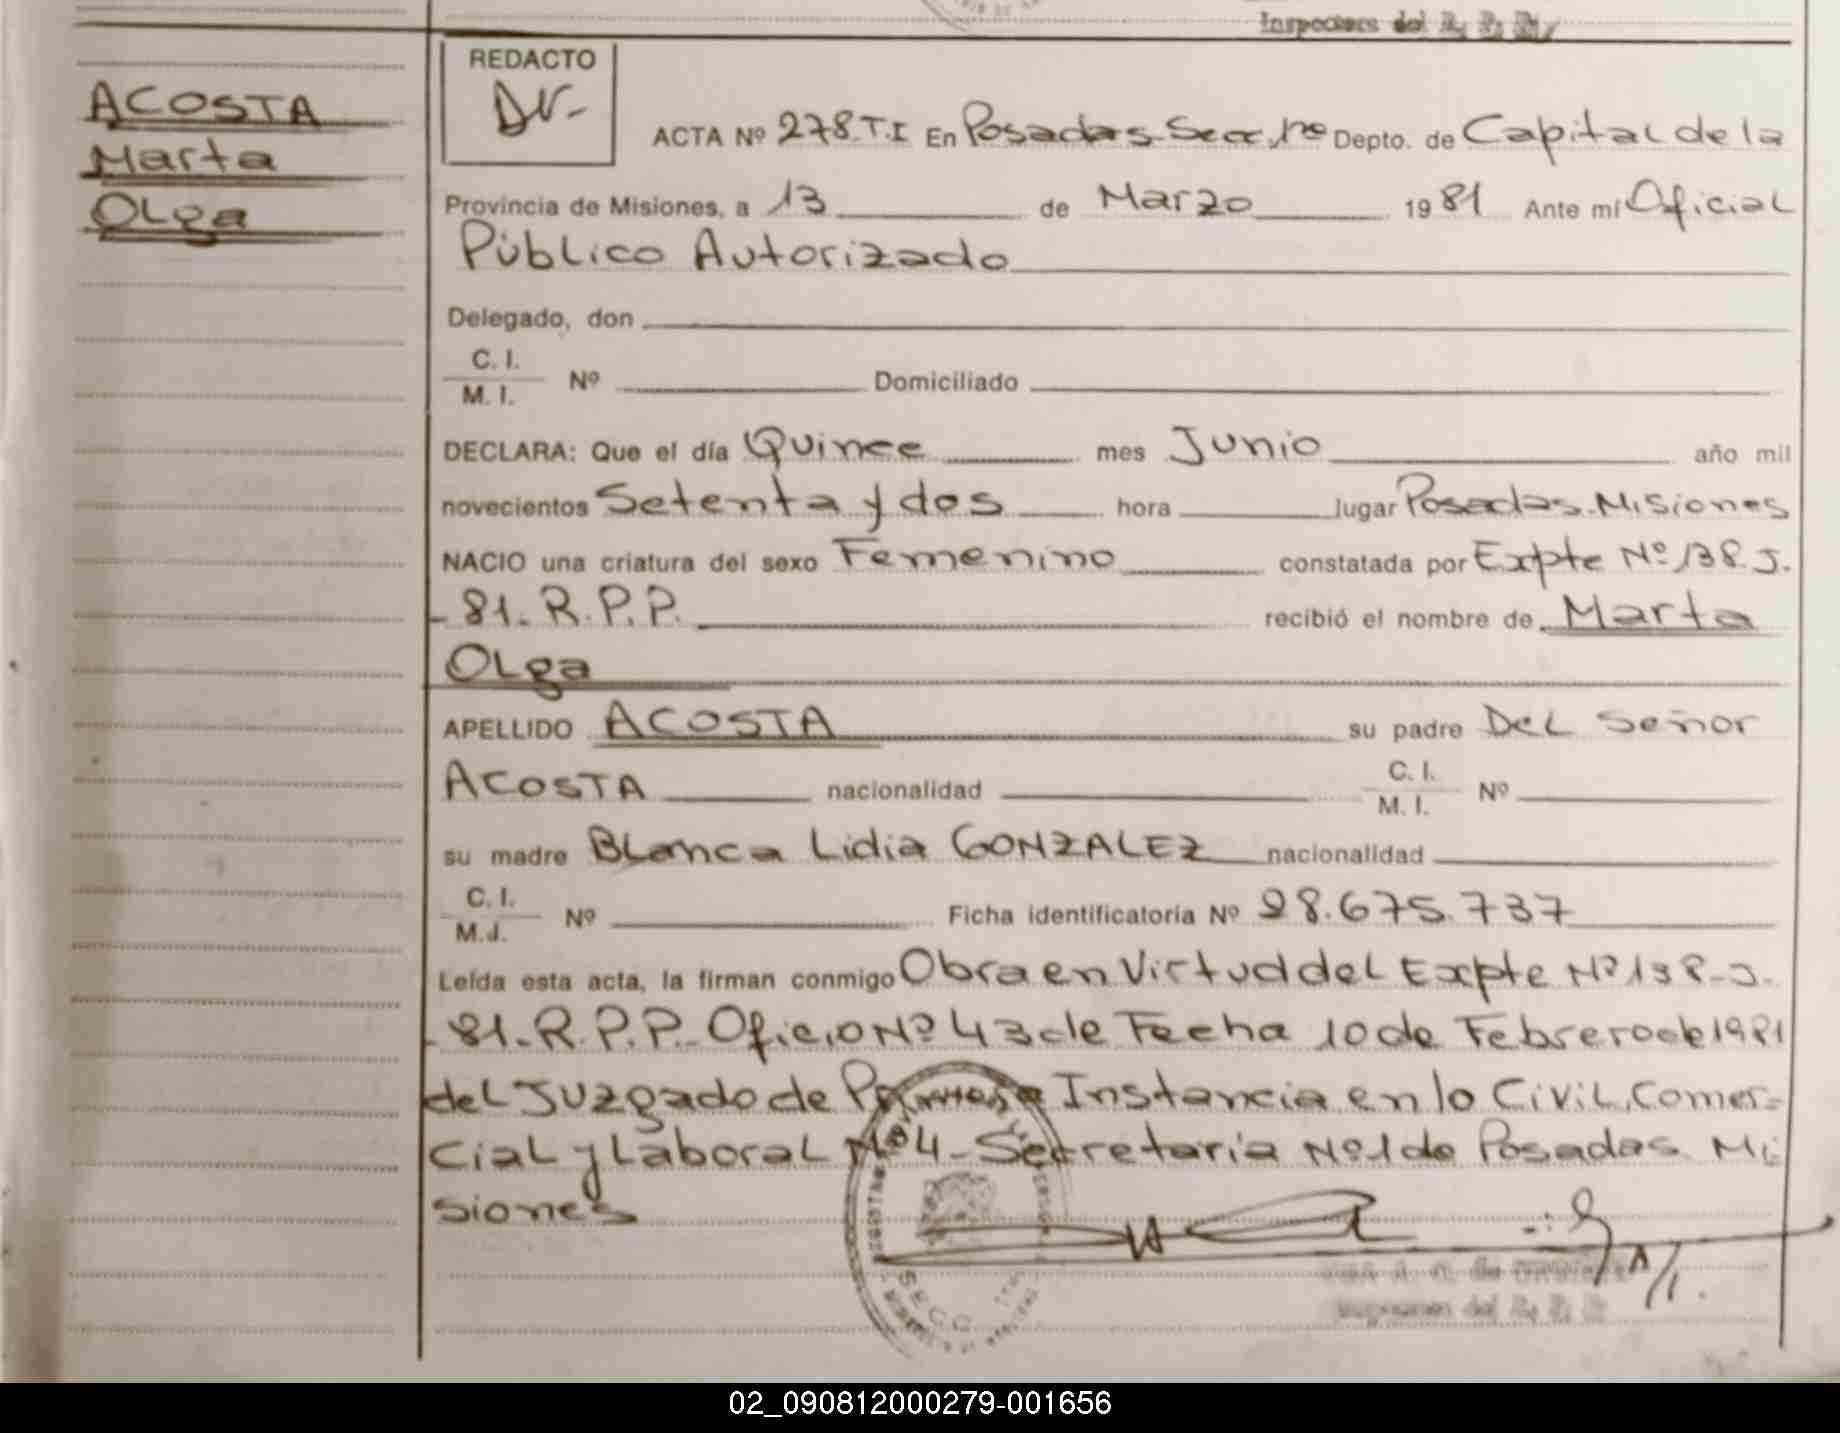 Inspectora del R. P. P.
ACOSTA
Marta
Olga
REDACTO
ACTA Nº 278.T.I En Posadas Secc. 1ra Depto. de Capital de la
Provincia de Misiones, a 13 de Marzo 1981 Ante mí Oficial
Público Autorizado
Delegado, don
C. I.
M. I. Nº Domiciliado
DECLARA: Que el día Quince mes Junio año mil
novecientos Setenta y dos hora lugar Posadas. Misiones
NACIO una criatura del sexo Femenino constatada por Expte Nº 138. J.
- 81. R. P. P. recibió el nombre de Marta
Olga
APELLIDO ACOSTA su padre Del Señor
ACOSTA nacionalidad C. I. M. I. Nº
su madre Blanca Lidia GONZALEZ nacionalidad
C. I.
M. J. Nº Ficha identificatoria Nº 28.675.737
Leída esta acta, la firman conmigo Obra en Virtud del Expte Nº 138-J.
- 81. R. P. P. Oficio Nº 43 de Fecha 10 de Febrero de 1981
del Juzgado de Primera Instancia en lo Civil, Comer-
cial y Laboral Nº 4 - Secretaria Nº 1 de Posadas Mi
siones
SECC
Inspectora del R. P. P.
02_090812000279-001656